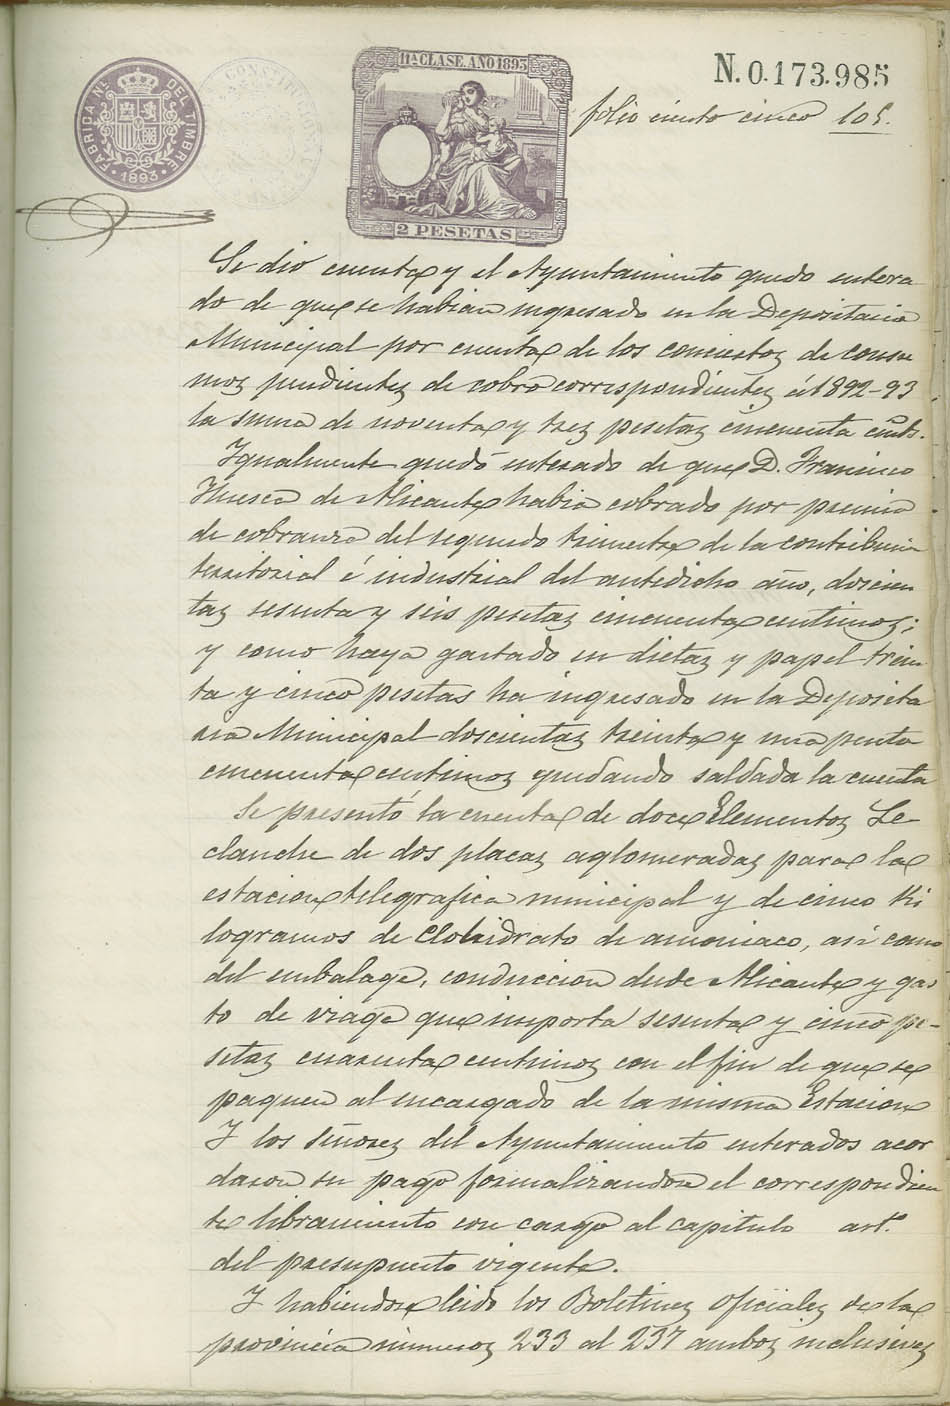 11ª CLASE. AÑO 1893
N. 0.173.985
FABRICA Nᴸ DEL TIMBRE
1893
2 PESETAS
folio ciento cinco 105.
Se dio cuenta y el Ayuntamiento quedo entera
do de que se habian ingresado en la Depositaria
Municipal por cuenta de los conciertos de consu
mos pendientes de cobro correspondientes á 1892-93
la suma de noventa y tres pesetas cincuenta cents.
Igualmente quedó enterado de que D. Francisco
Huesca de Alicante habia cobrado por premio
de cobranza del segundo trimestre de la contribucion
territorial é industrial del antedicho año, doscien
tas sesenta y seis pesetas cincuenta centimos;
y como haya gastado en dietas y papel trein
ta y cinco pesetas ha ingresado en la Deposita
ria Municipal doscientas treinta y una peseta
cincuenta centimos quedando saldada la cuenta
Se presentó la cuenta de doce Elementos Le
clanche de dos placas aglomeradas para la
estacion telegrafica municipal y de cinco ki
logramos de Clohidrato de amoniaco, asi como
del embalage, conduccion desde Alicante y gas
to de viage que importa sesenta y cinco pe-
setas cuarenta centimos con el fin de que se
paguen al encargado de la misma Estacion
Y los Señores del Ayuntamiento enterados acor
daron su pago formalizandose el correspondien
te libramiento con cargo al capitulo art.º
del presupuesto vigente.
Y habiendose leido los Boletines oficiales de la
provincia numeros 233 al 237 ambos inclusives